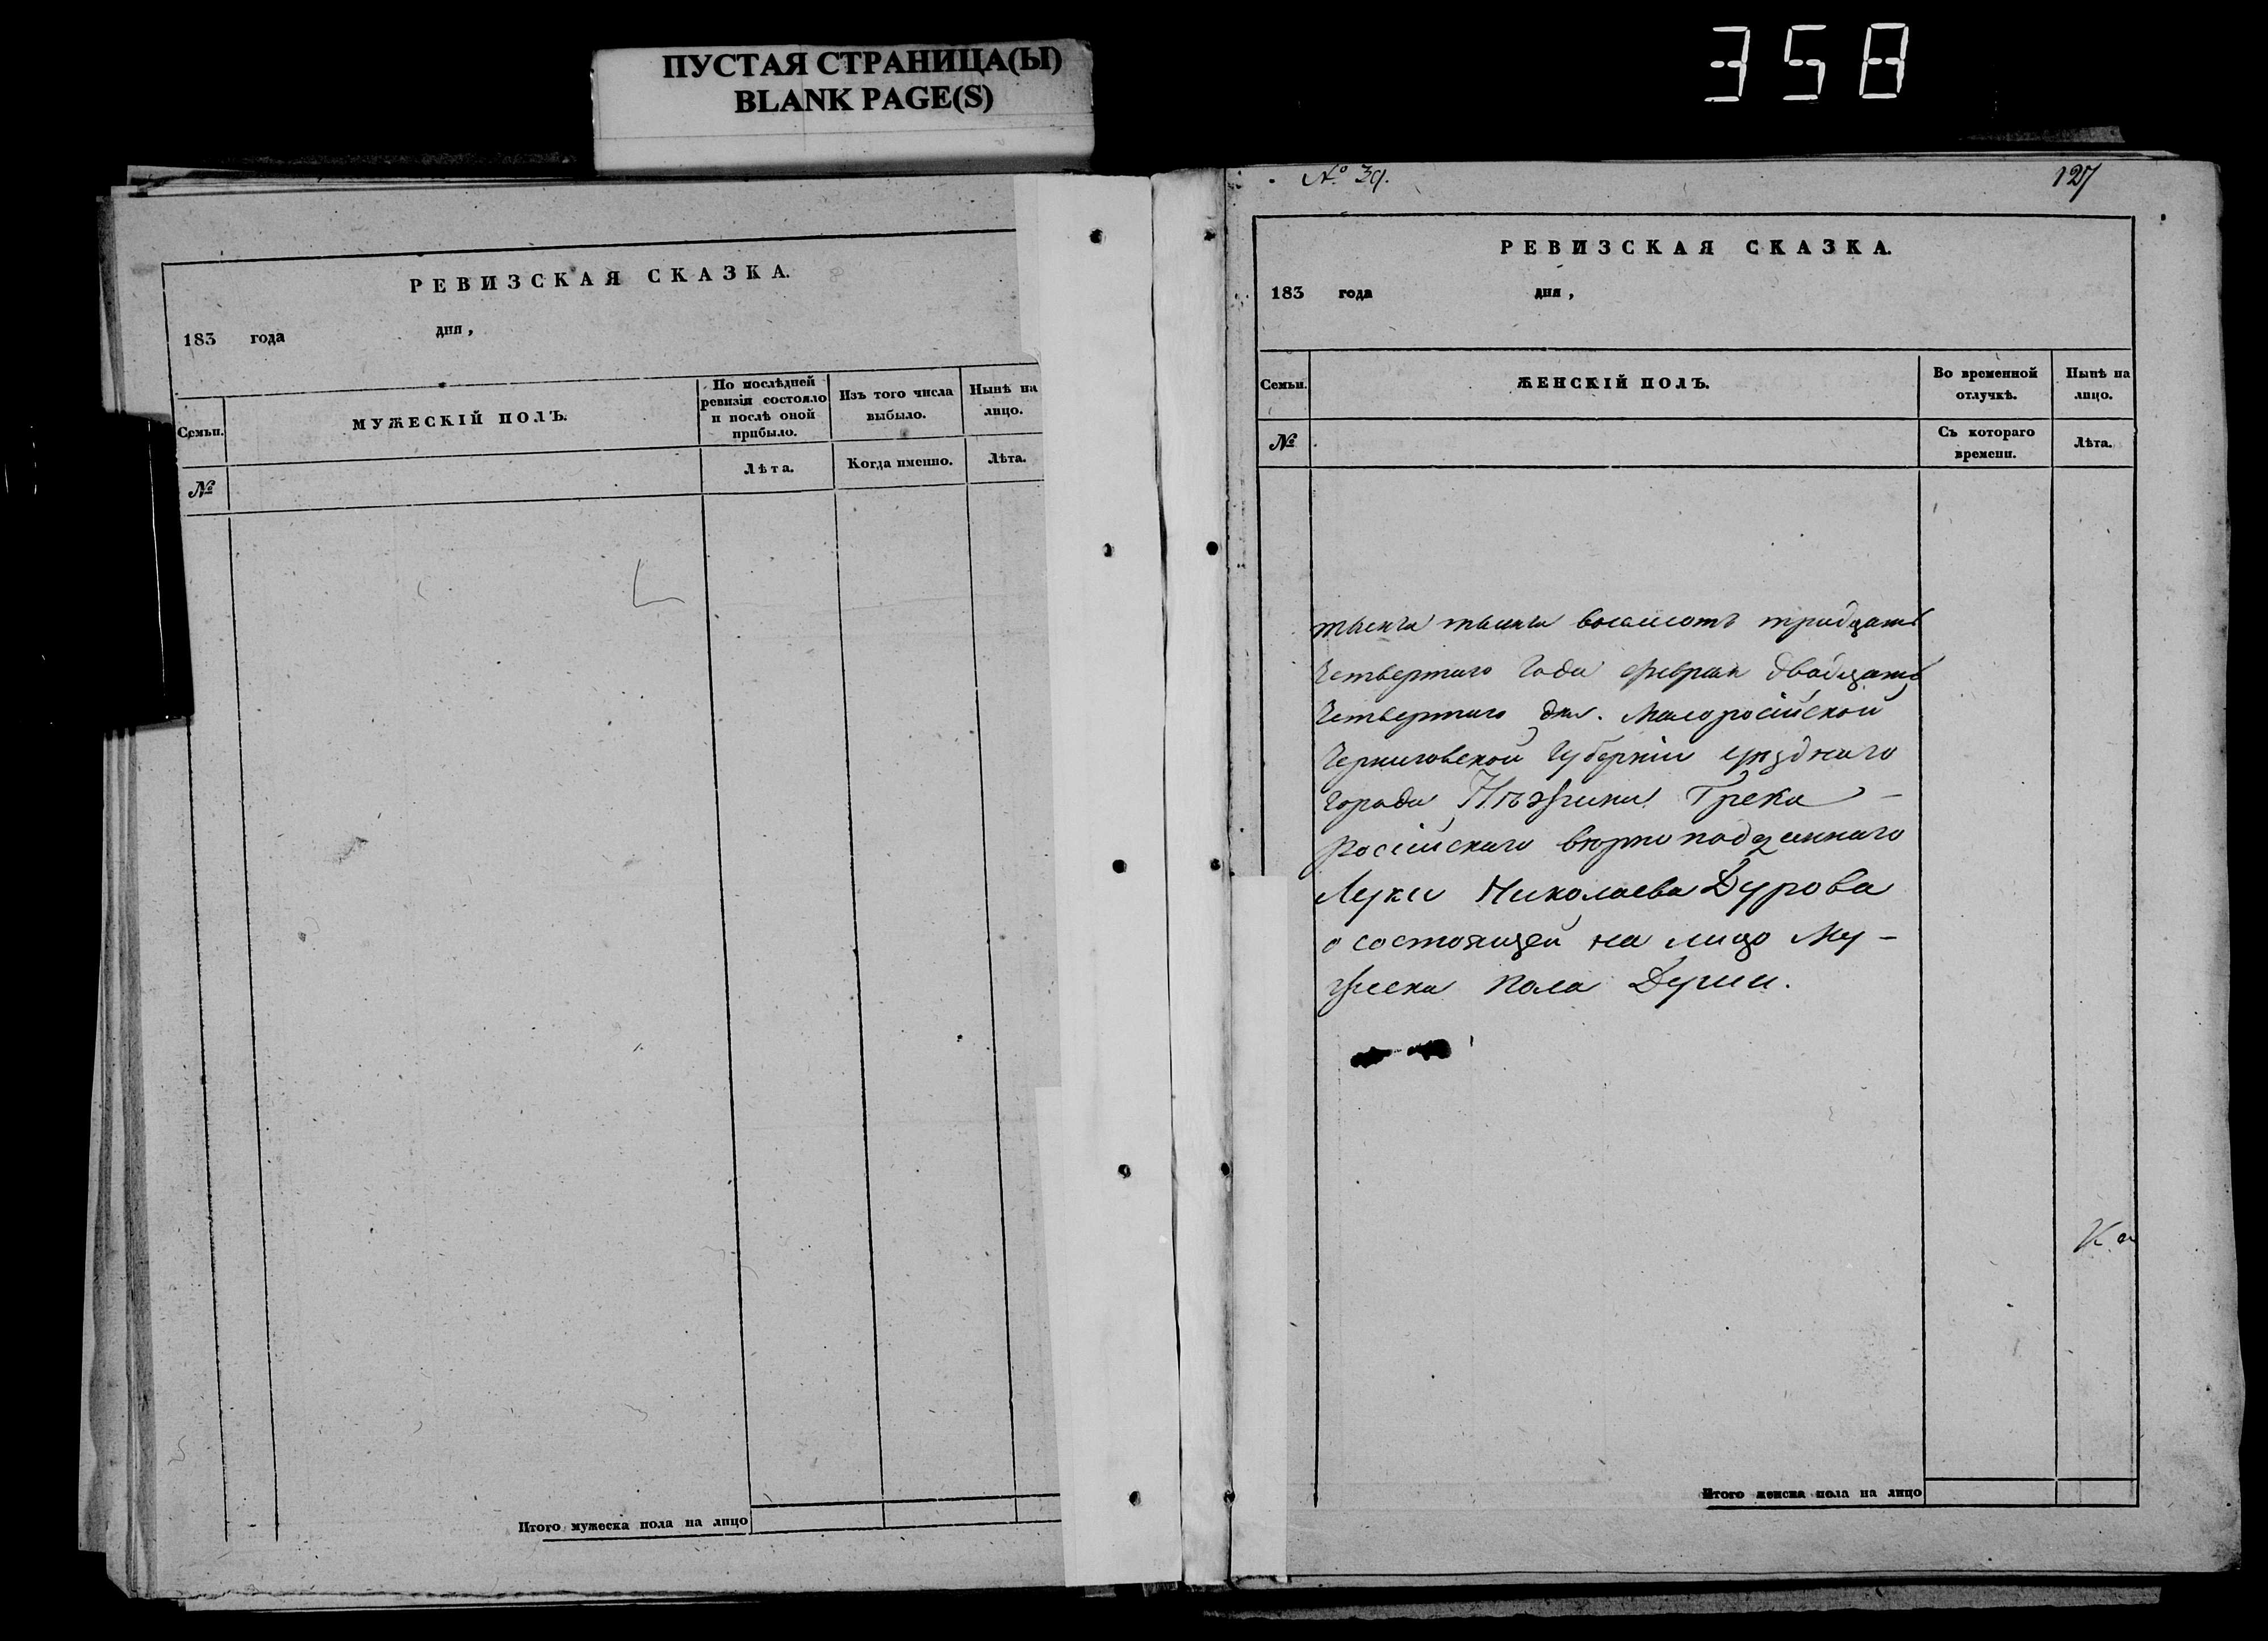 ПУСТАЯ СТРАНИЦА(Ы)
BLANK PAGE(S)
358
РЕВИЗСКАЯ СКАЗКА.
183 года дня,
Семьи.
МУЖЕСКІЙ ПОЛЪ.
По послѣдней ревизіи состояло и послѣ оной прибыло.
Изъ того числа выбыло.
Нынѣ на лицо.
№
Лѣта.
Когда именно.
Лѣта.
Итого мужеска пола на лицо
№ 39.
127
РЕВИЗСКАЯ СКАЗКА.
183 года дня,
Семьи.
ЖЕНСКІЙ ПОЛЪ.
Во временной отлучкѣ.
Нынѣ на лицо.
№
Съ котораго времени.
Лѣта.
тысяча восемсотъ тридцать
Четвертаго Года февраля двадцать
Четвертаго дня. Малоросійской
Черниговской Губерніи уѣзднаго
города Нѣжина Грека
Російскаго вѣрноподданнаго
Луки Николаева Дурова
о состоящей на лицо Му-
жеска пола Души.
Ка
Итого женска пола на лицо